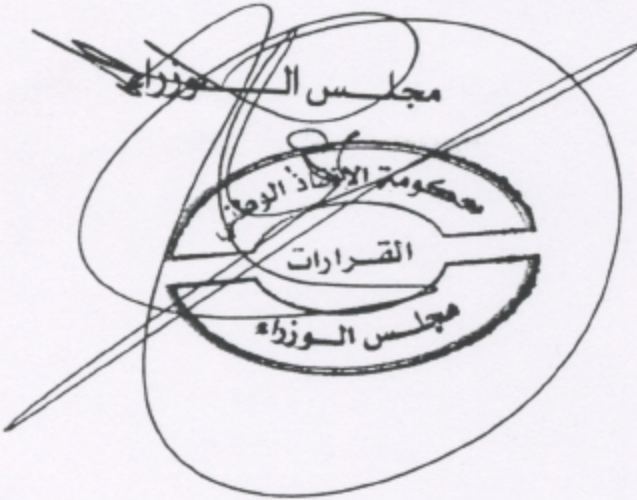 مجلس الـــوزراء
حكومة الانقاذ الوطني
القــرارات
مجلـس الــوزراء